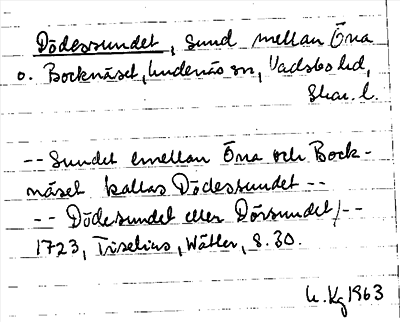 Dödessundet, sund mellan Öna
o. Bocknäset, Undenäs sn, Vadsbo hd,
Skar. l.
-- Sundet emellan Öna och Bock-
näset kallas Dödessundet --
-- Dödesundet eller Dörsundet/--
1723, Tiselius, Wätter, s. 30.
Kg 1963